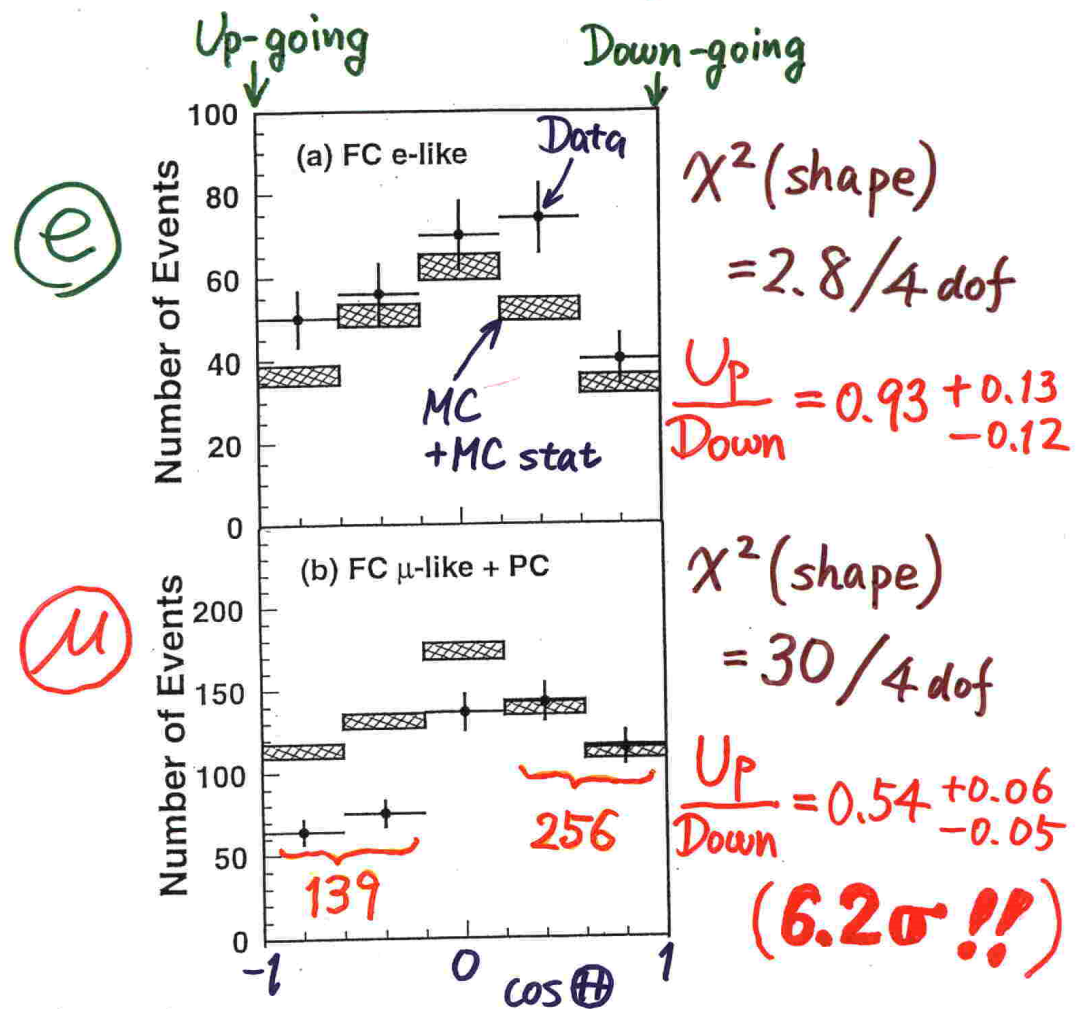 Up-going
Down-going
100
80
60
40
20
0
Number of Events
(a) FC e-like
Data
MC
+MC stat
e
χ² (shape)
= 2.8/4 dof
Up/Down = 0.93 +0.13 −0.12
200
150
100
50
0
Number of Events
(b) FC μ-like + PC
μ
139
256
χ² (shape)
= 30/4 dof
Up/Down = 0.54 +0.06 −0.05
(6.2σ !!)
-1
0
1
cos Θ